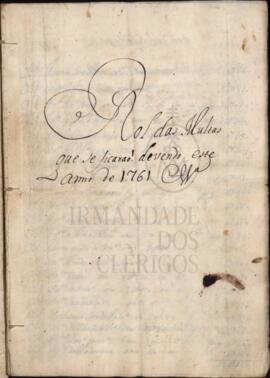 Rol das Multas
que se ficaraõ devendo este
anno de 1761
IRMANDADE
DOS
CLÉRIGOS